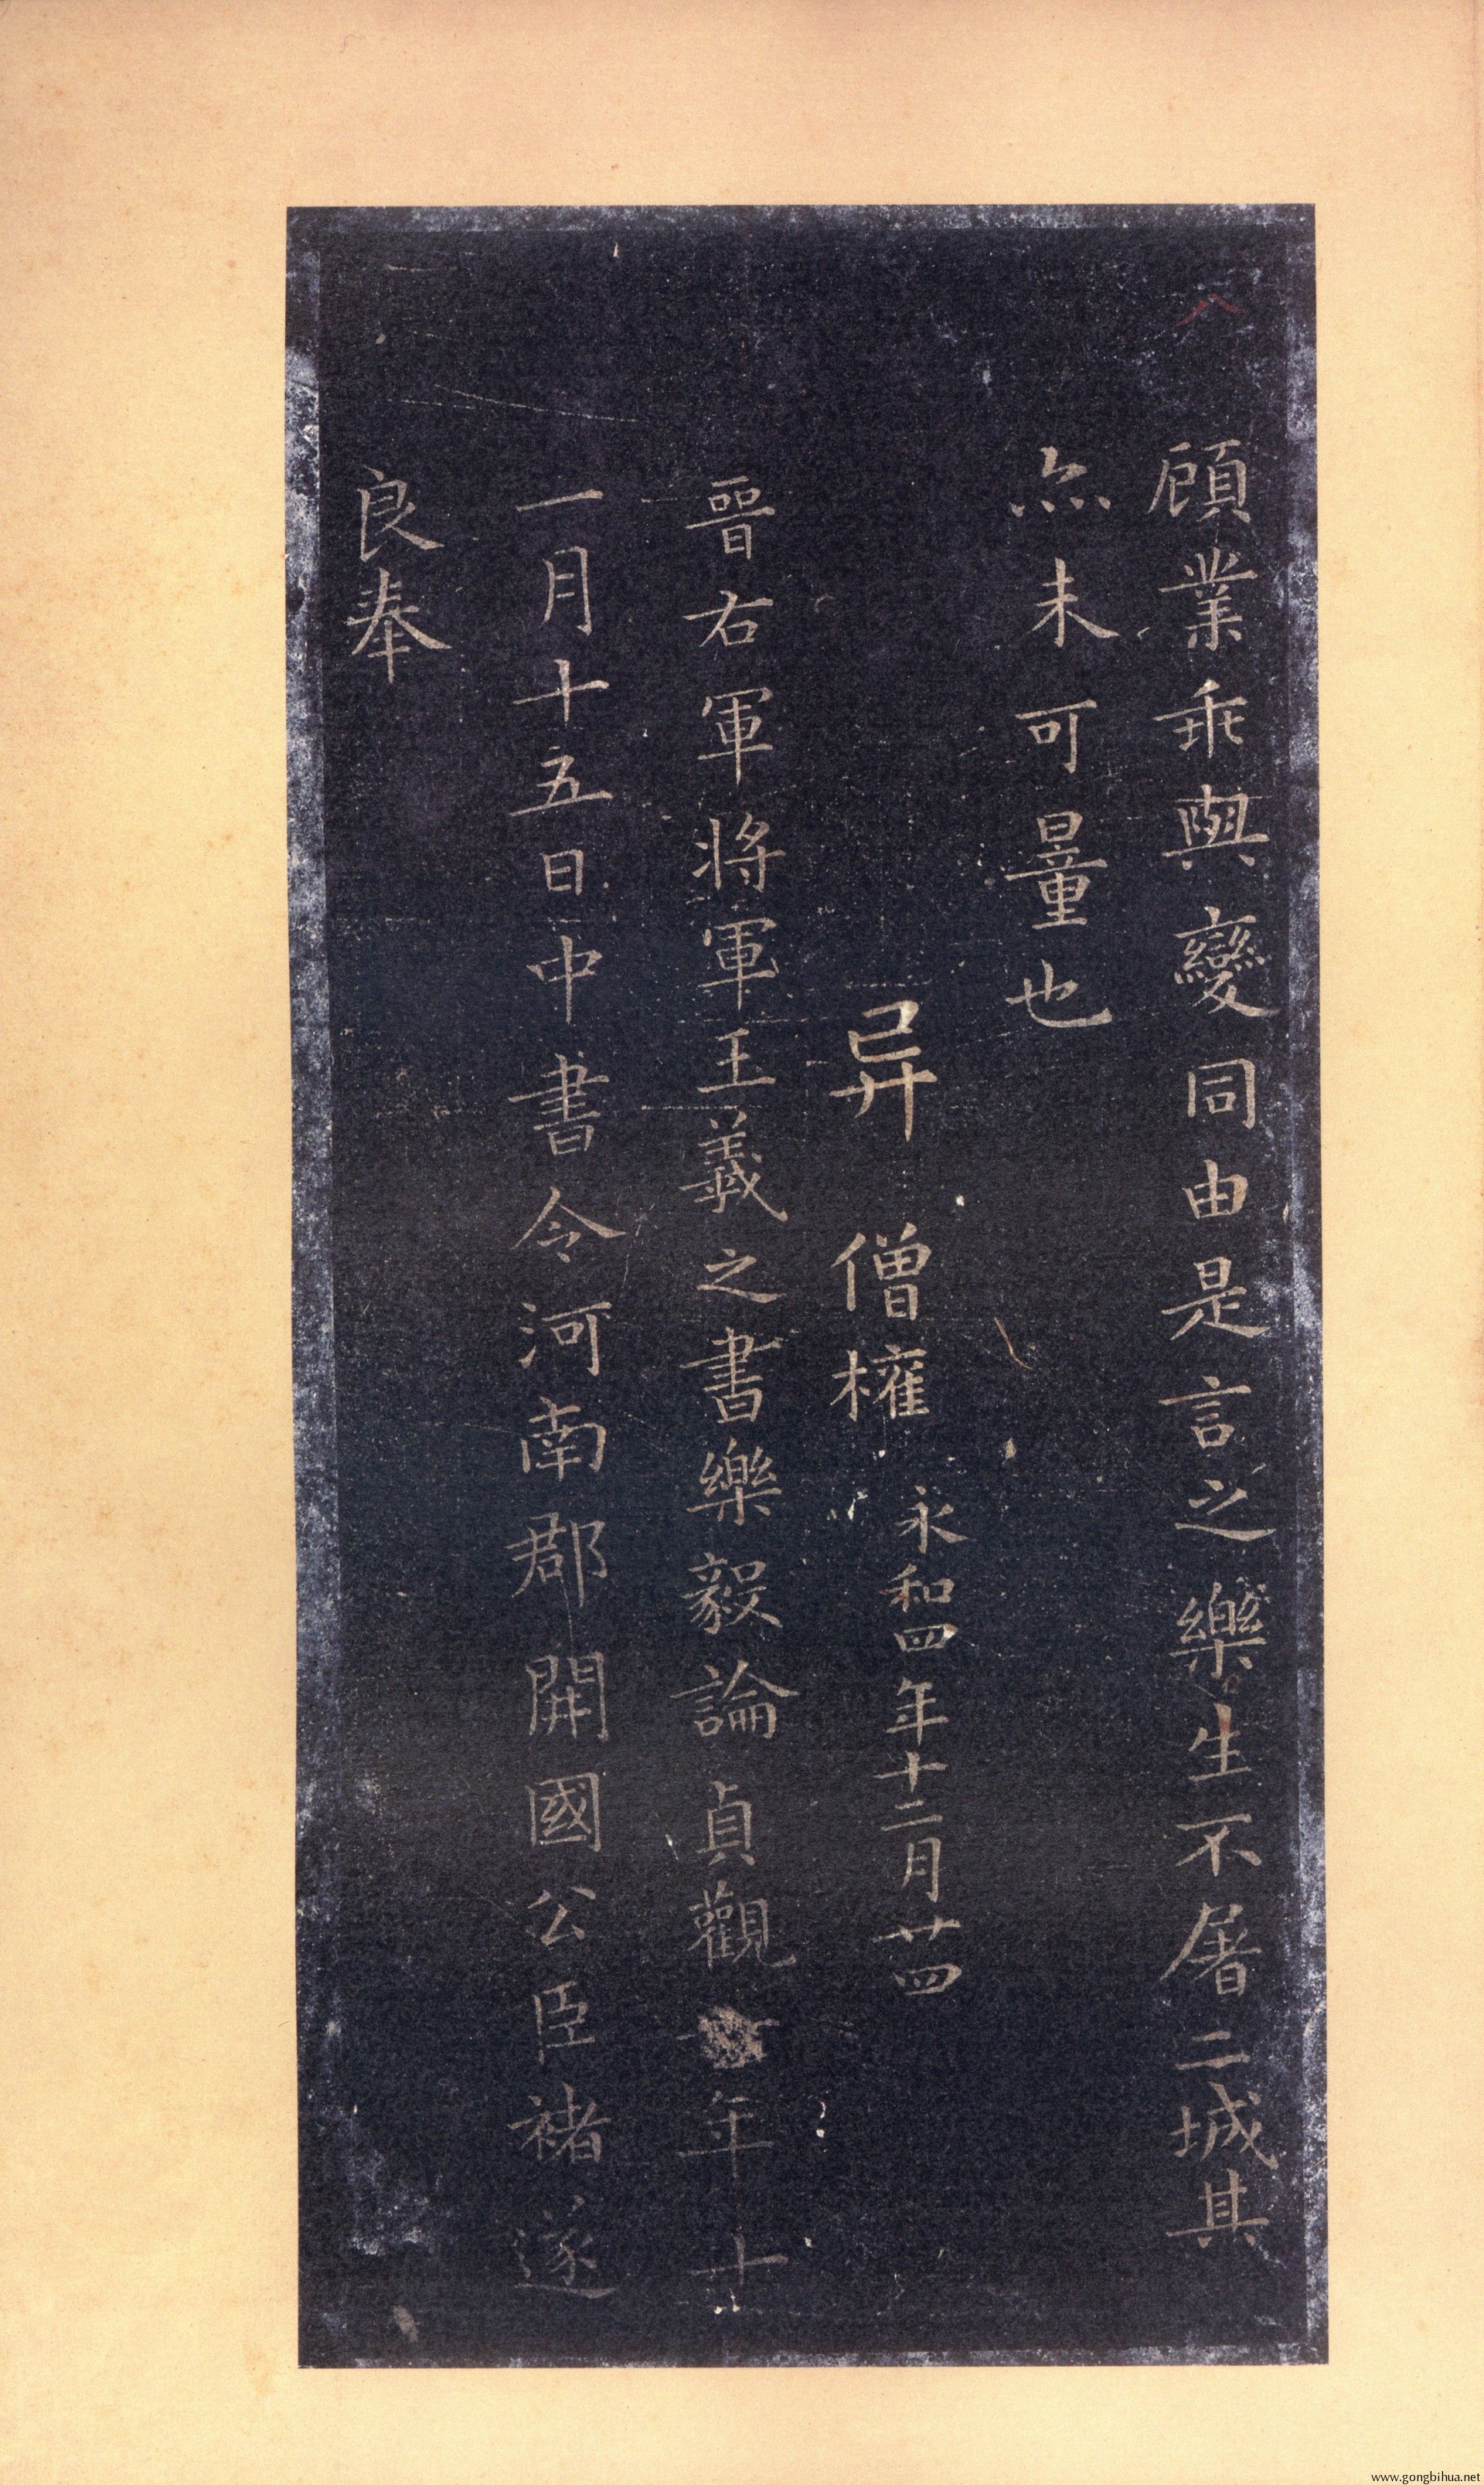 顧業乖與變同由是言之樂生不屠二城其
亦未可量也
异 僧權
永和四年十二月廿四
晉右軍將軍王羲之書樂毅論貞觀年十
一月十五日中書令河南郡開國公臣褚遂
良奉
www.gongbihua.net